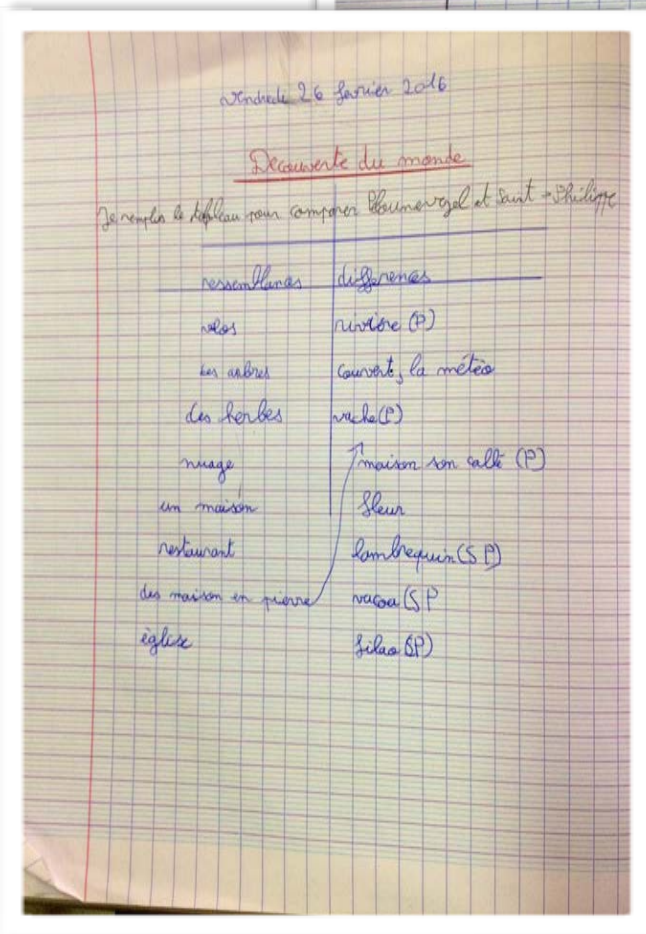 vendredi 26 fevrier 2016
Decouverte du monde
Je remplis le tableau pour comparer Plounevezel et Saint-Philippe
ressemblances differences
vélos rivière (P)
Les arbres couvert, la météo
des herbes vache (P)
nuage maison son collé (P)
un maison fleur
restaurant lambrequin (S P)
des maison en pierre vacoa (S P
église filao (SP)